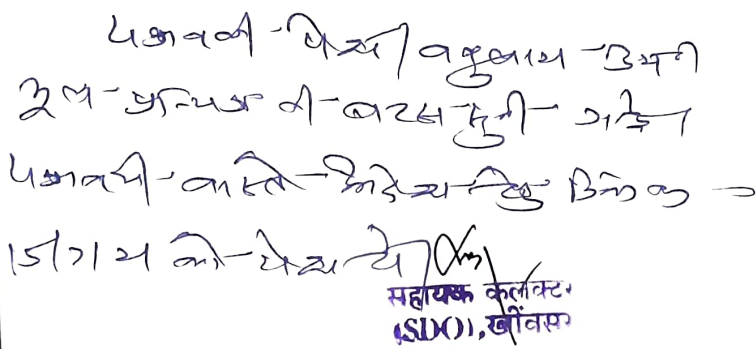 पत्रावली पेश। वकुलाय उभयी
मूल प्रार्थना पत्र की बहस सुनी गई।
पत्रावली वास्ते आदेश हेतु दिनांक
15/7/24 को पेश हो।
सहायक कलक्टर
(SDO), खींवसर